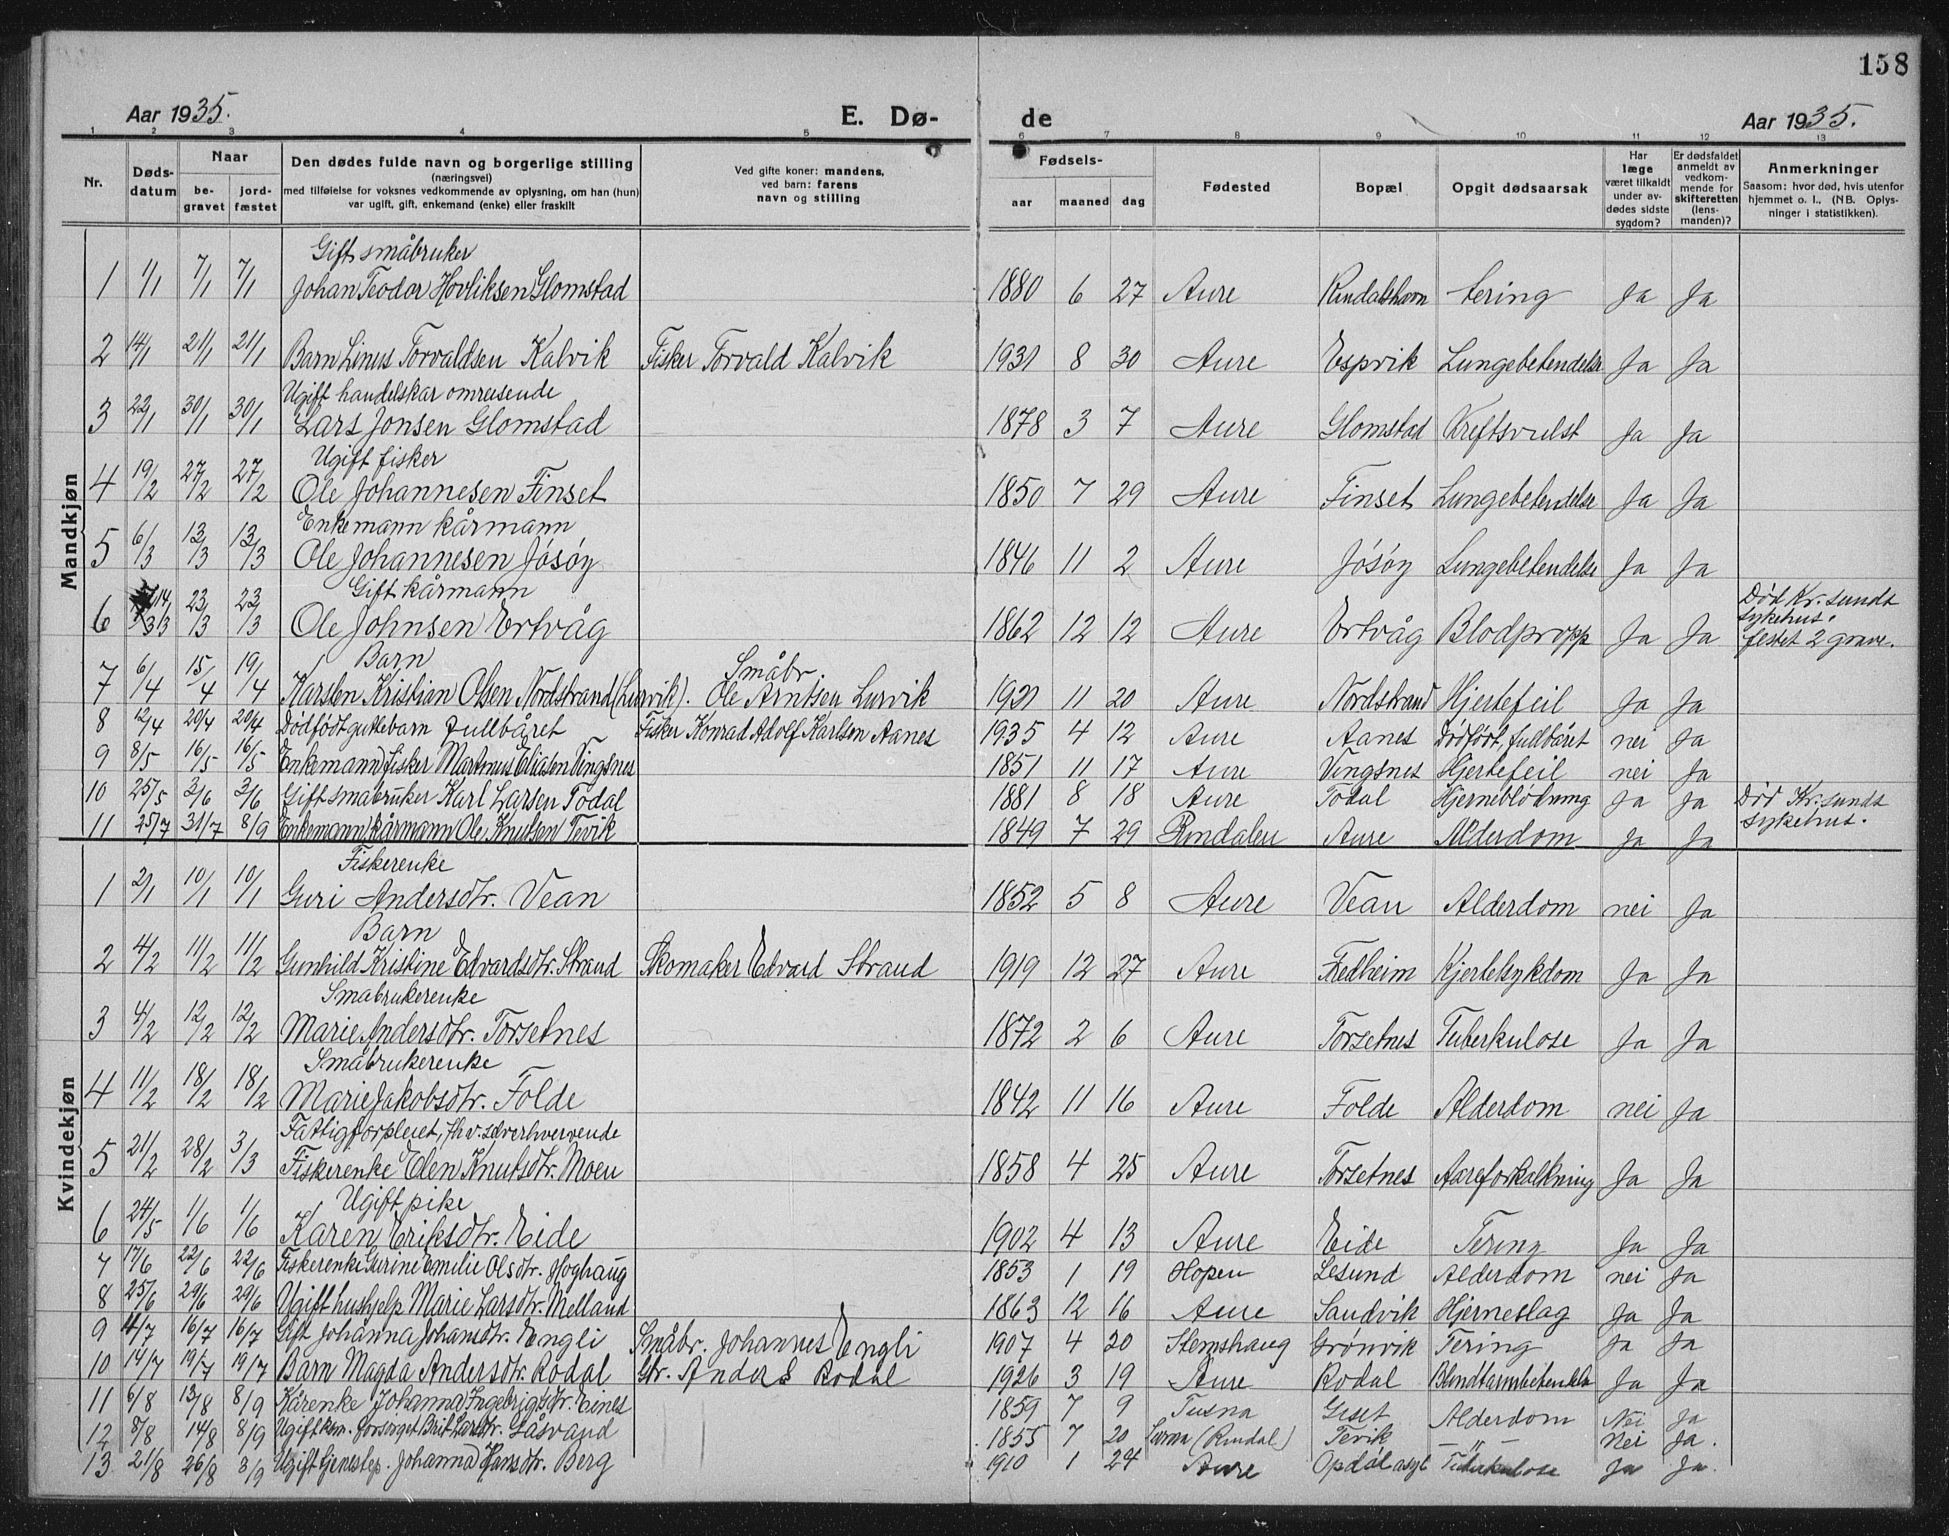 158
Aar 1935. E. Dø- de Aar 1935.
1 2 3 4 5 6 7 8 9 10 11 12 13
Nr. Døds-datum Naar begravet jord-fæstet Den dødes fulde navn og borgerlige stilling (næringsvei) med tilføielse for voksnes vedkommende av oplysning, om han (hun) var ugift, gift, enkemand (enke) eller fraskilt Ved gifte koner: mandens, ved barn: farens navn og stilling Fødsels- aar maaned dag Fødested Bopæl Opgit dødsaarsak Har læge været tilkaldt under av-dødes sidste sygdom? Er dødsfaldet anmeldt av vedkom-mende for skifteretten (lens-manden)? Anmerkninger Saasom: hvor død, hvis utenfor hjemmet o. l., (NB. Oplys-ninger i statistikken).
Mandkjøn
Gift småbruker
1 1/1 7/1 7/1 Johan Teodor Hovliksen Glomstad 1880 6 27 Aure Rindalshavn tering Ja Ja
2 14/1 21/1 21/1 Barn Linus Torvaldsen Kalvik Fisker Torvald Kalvik 1931 8 30 Aure Espvik Lungebetendelse Ja Ja
Ugift handelskar omreisende
3 22/1 30/1 30/1 Lars Jonsen Glomstad 1878 3 7 Aure Glomstad Kreftsvulst Ja Ja
Ugift fisker
4 19/2 27/2 27/2 Ole Johannesen Finset 1850 7 29 Aure Finset Lungebetendelse Ja Ja
Enkemann kårmann
5 6/3 13/3 13/3 Ole Johannesen Jósóy 1846 11 2 Aure Jósóy Lungebetendelse Ja Ja
Gift kårmann Død Kr.sunds
6 14/3 23/3 23/3 Ole Johnsen Ertvåg 1862 12 12 Aure Ertvåg Blodpropp Ja Ja sykehus. festet 2 grave.
Barn Småbr
7 6/4 15/4 19/4 Karsten Kristian Olsen Nordstrand (Lurvik). Ole Arntsen Lurvik 1931 11 20 Aure Nordstrand Hjertefeil Ja Ja
8 12/4 20/4 20/4 Dødfødt guttebarn fullbåret Fisker Konrad Adolf Karlsen Aanes 1935 4 12 Aure Aanes Dødfødt, fullbåret nei Ja
9 8/5 16/5 16/5 Enkemann fisker Martinus Eliasen Vingsnes 1851 11 17 Aure Vingsnes Hjertefeil nei Ja
10 25/5 3/6 3/6 Gift småbruker Karl Larsen Todal 1881 8 18 Aure Todal Hjerneblødning Ja Ja Død Kr.sunds
11 25/7 31/7 8/9 Enkemann kårmann Ole Knutsen Tevik 1849 7 29 Rindalen Aure Alderdom Ja Ja sykehus.
Kvindekjøn
Fiskerenke
1 2/1 10/1 10/1 Guri Andersdtr. Vean 1852 5 8 Aure Vean Alderdom nei Ja
Barn
2 4/2 11/2 11/2 Gunhild Kristine Edvardsdtr. Strand Skomaker Edvard Strand 1919 12 27 Aure Fredheim Hjertesykdom Ja Ja
Småbrukerenke
3 4/2 12/2 12/2 Marie Andersdtr. Torsetnes 1872 2 6 Aure Torsetnes Tuberkulose Ja Ja
Småbrukerenke
4 11/2 18/2 18/2 Marie Jakobsdtr. Folde 1842 11 16 Aure Folde Alderdom nei Ja
Fattigforpleiet, fhv. selverhvervende
5 21/2 28/2 3/3 Fiskerenke Elen Knutsdtr. Moen 1858 4 25 Aure Torsetnes Aareforkalkning Ja Ja
Ugift pike
6 24/5 1/6 1/6 Karen Eriksdtr. Eide 1902 4 13 Aure Eide Tering Ja Ja
7 17/6 22/6 22/6 Fiskerenke Gurine Emilie Olsdtr. Hoghaug 1853 1 19 Hopen Lesund Alderdom nei Ja
8 25/6 29/6 29/6 Ugift hushjelp Marie Larsdtr. Melland 1863 12 16 Aure Sandvik Hjerneslag Ja Ja
9 11/7 16/7 16/7 Gift Johanna Johansdtr. Engli Småbr. Johannes Engli 1907 4 20 Stemshaug Grønvik Tering Ja Ja
10 14/7 19/7 19/7 Barn Magda Andersdtr. Rodal Gbr. Anders Rodal 1926 3 19 Aure Rodal Blindtarmbetendelse Ja Ja
11 6/8 13/8 8/9 Kårenke Johanna Ingebrigtsdtr. Eines 1859 7 9 Tusna Giset Alderdom Nei Ja
12 8/8 14/8 8/9 Ugift kom. forsørget Brit Larsdtr. Gåsvand 1855 7 20 (Rindal) Tevik — " — Nei Ja.
13 21/8 26/8 8/9 Ugift tjenestep. Johanna Hansdtr. Berg 1910 1 24 Aure Opdøl asyl Tuberkulose Ja Ja.